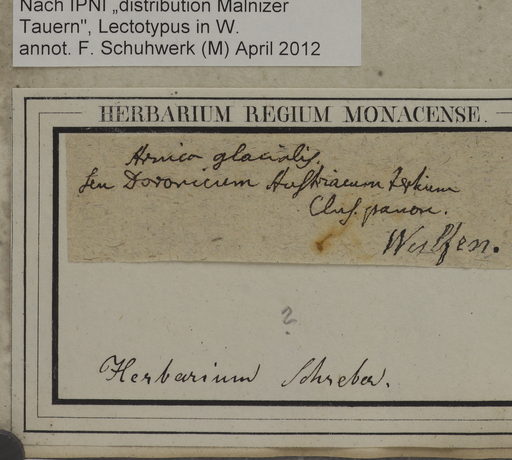 Nach IPNI „distribution Malnizer
Tauern", Lectotypus in W.
annot. F. Schuhwerk (M) April 2012
HERBARIUM REGIUM MONACENSE.
Arnica glacialis.
seu Doronicum Austriacum tertium
Clus. panon.
Wulfen.
?
Herbarium Schreber.